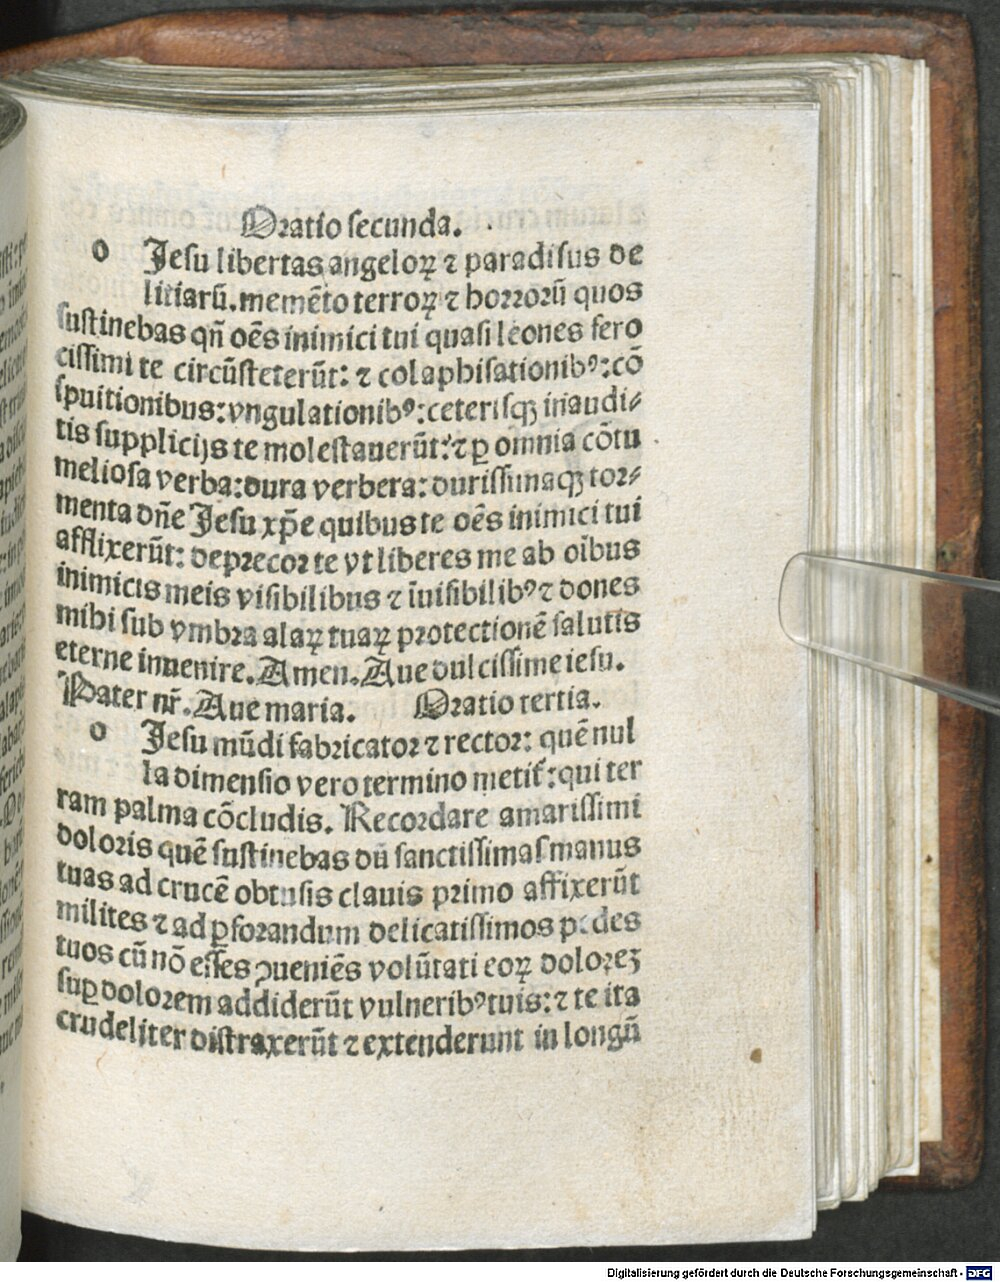 Oratio secunda.
o Jesu libertas angeloꝝ ⁊ paradisus de
litiarū. memēto terroꝝ ⁊ horrorū quos
sustinebas qñ oēs inimici tui quasi leones fero
cissimi te circūsteterūt: ⁊ colaphisationibꝰ: cō
spuitionibus: vngulationibꝰ: ceterisqꝫ inaudi⸗
tis supplicijs te molestauerūt: ⁊ ꝑ omnia cōtu
meliosa verba: dura verbera: durissimaqꝫ tor⸗
menta dñe Jesu xp̄e quibus te oēs inimici tui
afflixerūt: deprecor te vt liberes me ab oībus
inimicis meis visibilibus ⁊ īuisibilibꝰ ⁊ dones
mihi sub vmbra alaꝝ tuaꝝ protectionē salutis
eterne inuenire. Amen. Aue dulcissime iesu.
Pater nr̄. Aue maria. Oratio tertia.
o Jesu mūdi fabricator ⁊ rector: quē nul
la dimensio vero termino metit̄: qui ter
ram palma cōcludis. Recordare amarissimi
doloris quē sustinebas dū sanctissimas manus
tuas ad crucē obtusis clauis primo affixerūt
milites ⁊ ad ꝑforandum delicatissimos pedes
tuos cū nō esses ꝯueniēs volūtati eoꝝ doloreꝫ
suꝑ dolorem addiderūt vulneribꝰ tuis: ⁊ te ita
crudeliter distraxerūt ⁊ extenderunt in longū
Digitalisierung gefördert durch die Deutsche Forschungsgemeinschaft - DFG